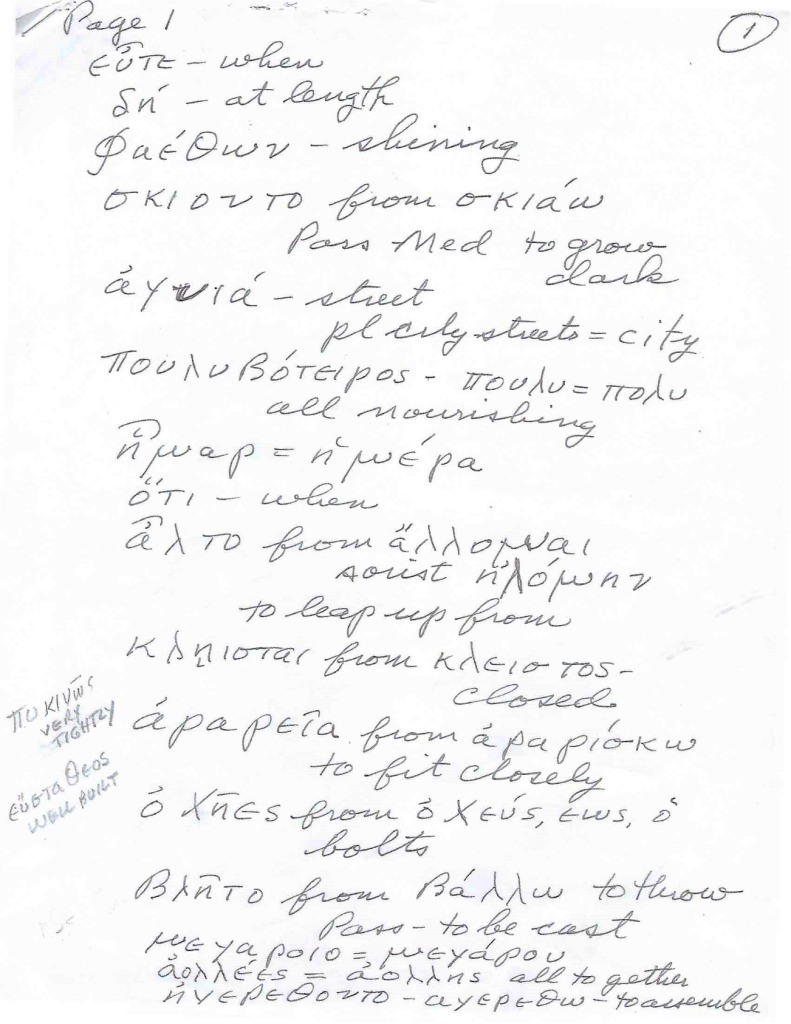 Page 1
①
εὖτε – when
δή – at length
φαέθων – shining
σκιοντο from σκιάω
Pass Med to grow
dark
ἀγυιά – street
pl city streets = city
πουλυβότειρος - πουλυ = πολυ
all nourishing
ἦμαρ = ἡμέρα
ὅτι – when
ἆλτο from ἅλλομαι
aorist ἡλόμην
to leap up from
κληισται from κλειστος –
closed
πυκινῶς
VERY
TIGHTLY
ἀραρεῖα from ἀραρίσκω
to fit closely
εὔσταθεος
WELL BUILT
ὀχῆες from ὀχεύς, εως, ὁ
bolts
βλῆτο from βάλλω to throw
Pass – to be cast
μεγαροιο = μεγάρου
ἀολλέες = ἀολλης all to gether
ἠγερεθοντο – αγερεθω – to assemble